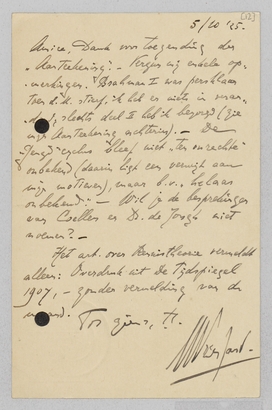 [12]
5/20 '25.
Amice, Dank voor toezending der
"Aanteekening". Vergun mij enkele op-
merkingen. Brahman I was persklaar
toen d. K. stierf, ik heb er niets in veran-
, slechts deel II heb ik bezorgd (zie
mijn Aanteekening achterin). — De
"Jengd" cyclus bleef niet "ten onrechte"
onbekend (daarin ligt een verwijt aan
mijn motieven), maar b.v. "helaas
onbekend". — Wil je de besprekingen
van Coelles en D. de Jongh niet
noemen? —
Het art. over Perzistheorie vermeldt
alleen: Overdruk uit De Tijdspiegel
1907, — zonder vermelding van de
maand.
Tot ziens, t.t.